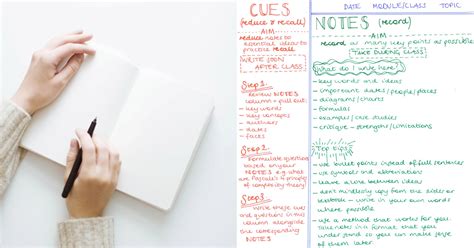 CUES
(reduce & recall)
AIM
reduce notes to
essential ideas to
practise recall
WRITE SOON
AFTER CLASS
Step 1
Review NOTES
column + pull out:
- key words
- key concepts
- authors
- dates
- faces
Step 2
Formulate questions
based on your
NOTES e.g. what
are principles of
complexity theory?
Step 3
Write these cues
and questions in this
column alongside
the content
DATE MODULE/CLASS TOPIC
NOTES (record)
AIM
record as many key points as possible
TAKE DURING CLASS
What do I write here?
- key words and ideas
- important dates/people/places
- diagrams/charts
- formulas
- examples/case studies
- critique - strengths/limitations
Top tips
- use bullet points instead of full sentences
- use symbols and abbreviations
- leave space between ideas
- don't mindlessly copy from the slides or
textbook - write in your own words
where possible
- use a method that works for you.
Take notes in a format that you
understand so you can make sense
of them later